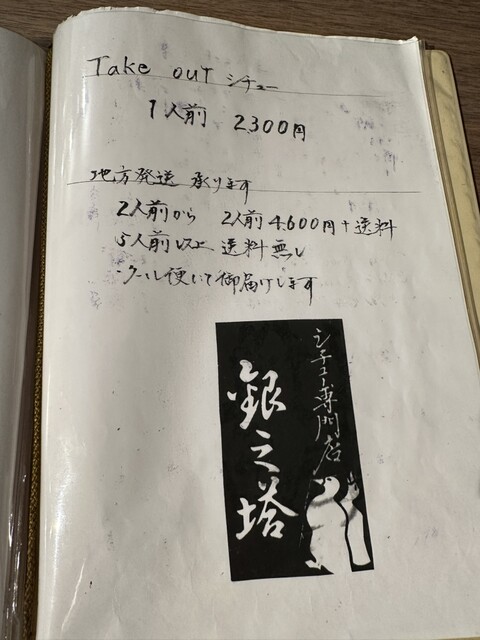 Take out シチュー
1人前 2300円
地方発送 承ります
2人前から 2人前4,600円+送料
5人前以上 送料無し
・クール便にて御届けします
シチュー専門店
銀之塔